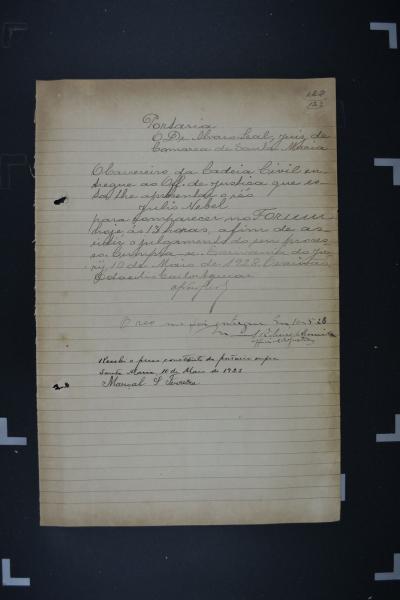 Portaria
O Dr. Alvaro Leal, Juiz de
Comarca de Santa Maria
O Carcereiro da Cadeia Civil en-
tregue ao Off. de Justiça que es-
ta lhe apresentar o réo
Julio Nebel
para comparecer no Forum
hoje ás 13 horas, afim de as-
sistir o julgamento do seu proces-
so. Cumpra-se.
10 de Maio de 1928. O escrivão,
O réo me foi entregue Em 10-5-28
Recebi o preso constante da portaria supra
Santa Maria, 10 de Maio de 1928
Marçal S Ferreira